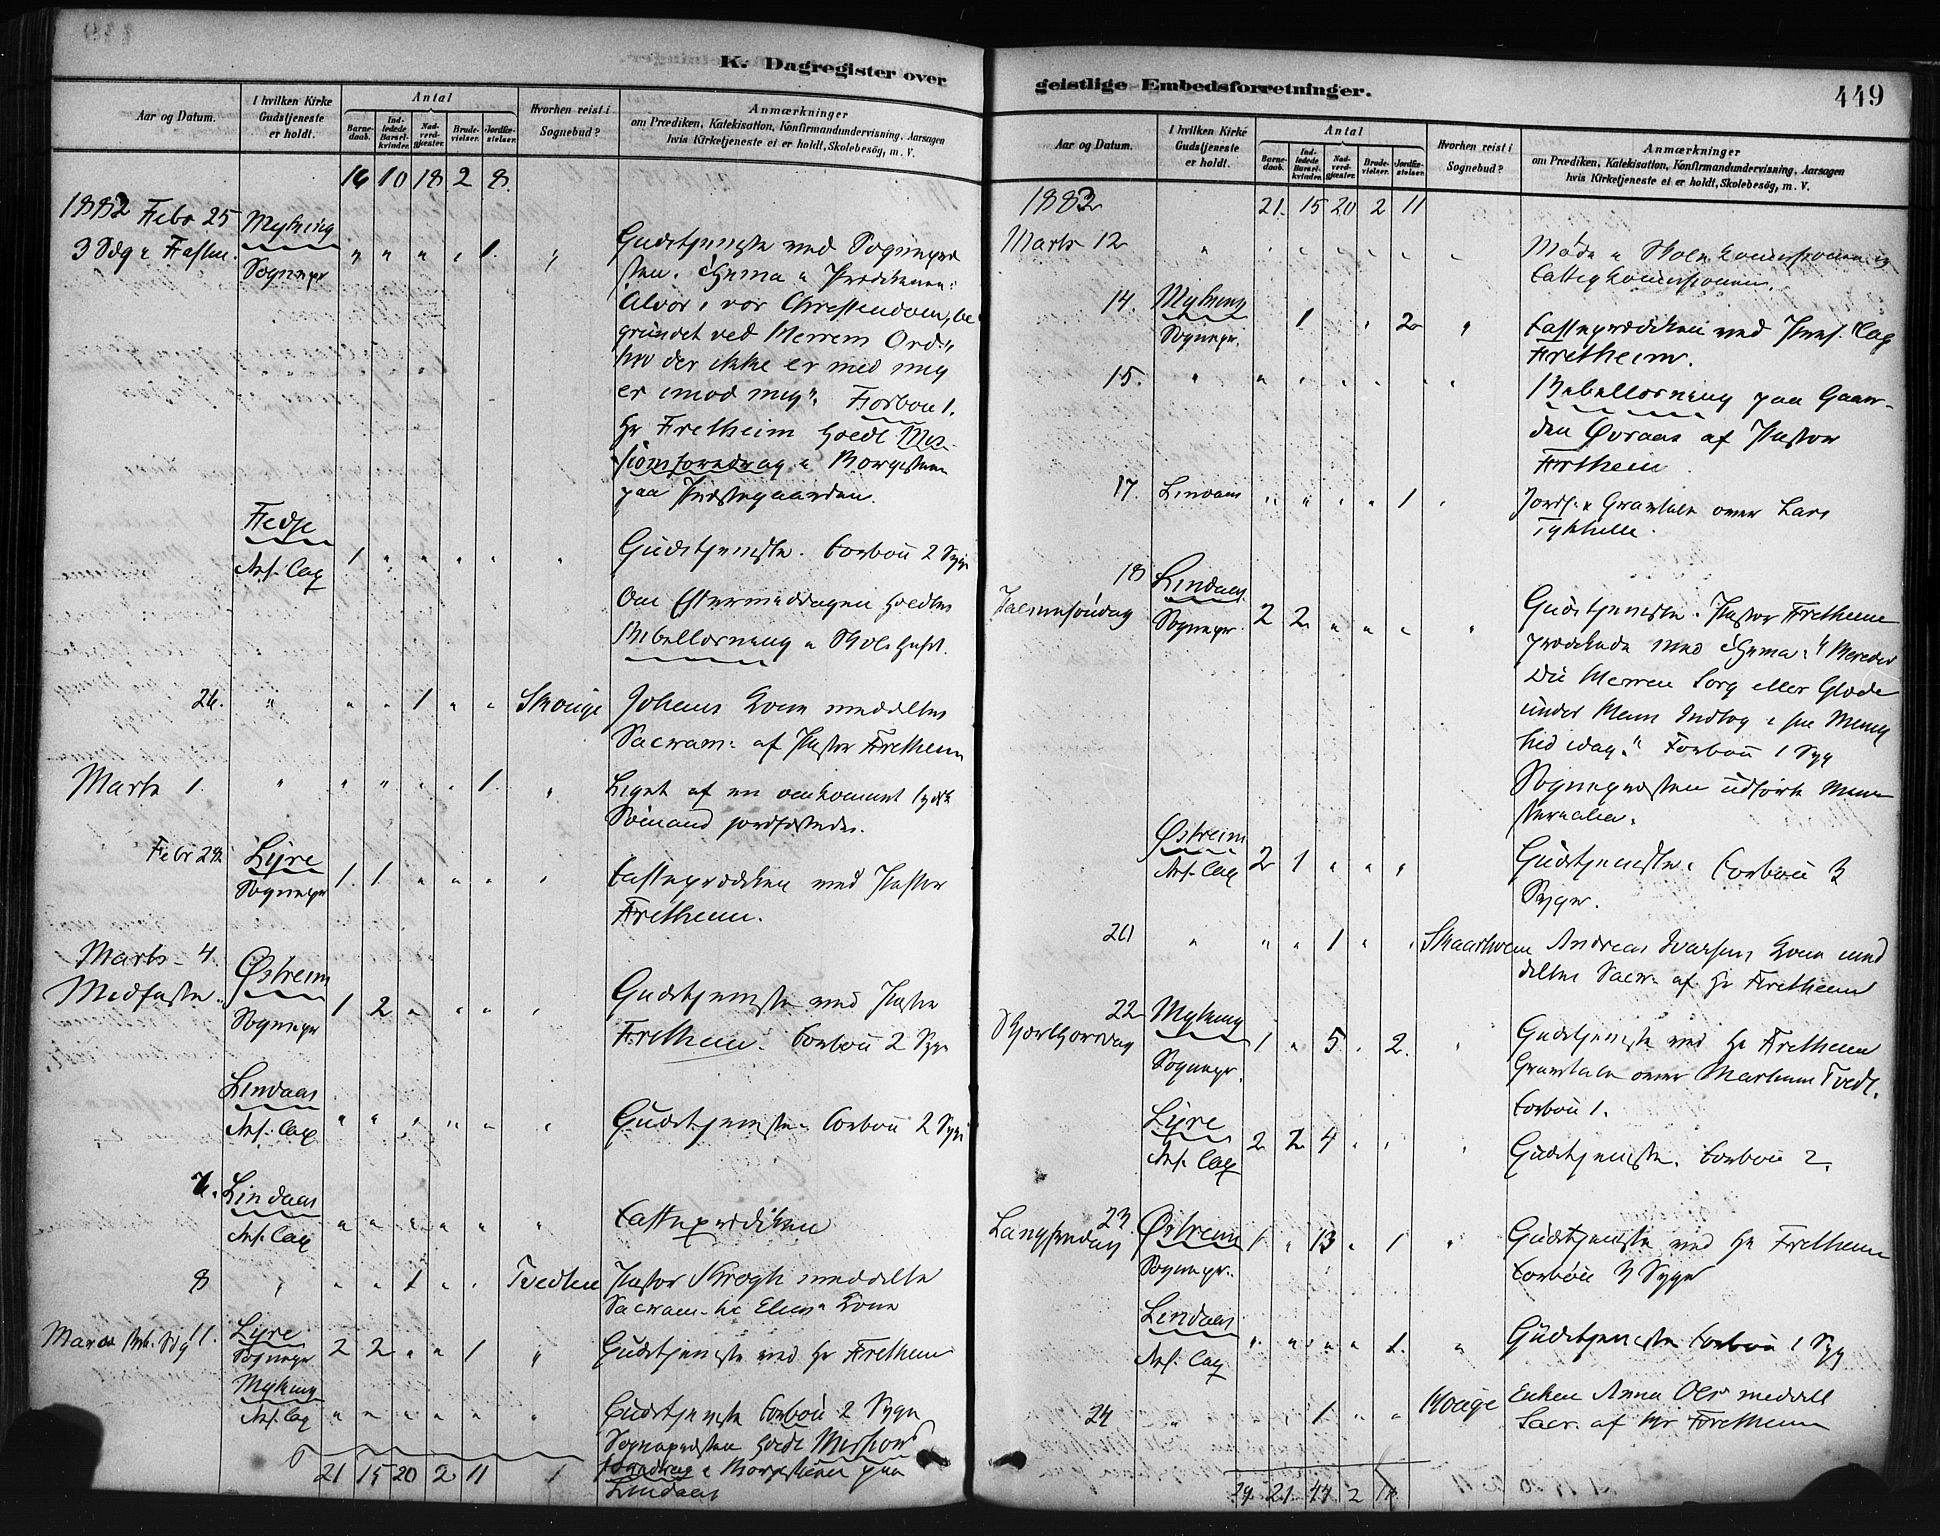 K. Dagregister over
Aar og Datum.
I hvilken Kirke
Gudstjeneste
er holdt.
Antal
Barne-
daab.
Ind-
ledede
Barsel-
kvinder.
Nad-
verd-
gjæster.
Brude-
vielser.
Jordfæ-
stelser.
Hvorhen reist i
Sognebud?
Anmærkninger
om Prædiken, Katekisation, Konfirmandundervisning, Aarsagen
hvis Kirketjeneste ei er holdt, Skolebesøg, m. V.
16 10 18 2 8.
Febr 25 Myking
3 Sdg i Fasten. " " " " 1. " Gudstjeneste ved Sognepræ
Sognepr sten. Thema i Prædikenen:
Alvor i vor Christendom, be
grundet ved Herrens Ord:
hvo der ikke er med mig
er imod mig". Forbøn 1.
Hr Fretheim holdt Mis-
sionsforedrag i Borgestuen
paa Præstegaarden.
Fedje
Res. Cap 1 " " " " " Gudstjeneste. Forbøn 2 Syge
Om Eftermiddagen holdtes
Bibellæsning i Skolehuset.
26. " " " 1 " " Johans Kone meddeltes
Sacram. af Pastor Fretheim
Marts 1. " " " " " 1. " Liget af en omkommet tydsk
Sømand jordfæstedes.
Febr 28. Lyre
Sognepr 1. 1 " " " " Fasteprædiken ved Pastor
Fretheim.
Marts 4. Østreim
Midfaste. Sognepr 1 2 " " " " Gudstjeneste ved Pastor
Fretheim. Forbøn 2 Syge
Lindaas
Res. Cap " " " " " " Gudstjeneste. Forbøn 2 Syge
7. Lindaas
Res. Cap " " " " " " Fasteprædiken
8 " " " 1 " " Tvedten Pastor Krogh meddelte
Sacram. Kone
11. Lyre
Sognepr 2 2 " " 1 " Gudstjeneste ved Hr Fretheim
Myking
Res. Cap " " " " " " Gudstjeneste Forbøn 2 Syge
Sognepræsten holdt Missions
foredrag i Borgestuen paa
Lindaas
21 15 20 2 11
geistlige Embedsforretninger.
449
Aar og Datum.
I hvilken Kirke
Gudstjeneste
er holdt.
Antal
Barne-
daab.
Ind-
ledede
Barsel-
kvinder.
Nad-
verd-
gjæster.
Brude-
vielser.
Jordfæ-
stelser.
Hvorhen reist i
Sognebud?
Anmærkninger
om Prædiken, Katekisation, Konfirmandundervisning, Aarsagen
hvis Kirketjeneste ei er holdt, Skolebesøg, m. V.
1883 21. 15 20 2 11
Marts 12 " " " " " " " Møde i Skolekommissionen og
Fattigkommissionen.
14. Myking
Sognepr. 1 " 2 " Fasteprædiken ved Pers. Cap
Fretheim.
15. " " " " " " " Bibellæsning paa Gaar-
den Øvraas af Pastor
Fretheim
17. Lindaas " " " " 1 " Jordf. & Gravtale over Lars
18 Lindaas
Palmesøndag Sognepr. 2 2 " " " " Gudstjeneste. Pastor Fretheim
prædikede med Thema: "Bereder
Du Herren Sorg eller Glæde
under Hans Indtog i sin Menig
hed idag." Forbøn 1 Syg
Sognepræsten udførte Mini
sterialia.
Østreim
Res. Cap 2 1 " " " Gudstjeneste. Forbøn 3
Syge.
20 " " " 1 " " Andreas Iversens Kone med
deltes Sacr. af Hr Fretheim
22 Myking
Skjærthorsdag 1 " 5 " 2. " Gudstjeneste ved Hr Fretheim
Sognepr. Gravtale over Tvedt.
Forbøn 1.
Lyre
Res. Cap 2 2 4 " " " Gudstjeneste. Forbøn 2.
23 Østreim
Langfredag Sognepr. 1 " 13 " 1 " Gudstjeneste ved Hr Fretheim
Forbøn 3 Syge
Lindaas
Res. Cap " " " " 1. " Gudstjeneste Forbøn 1 Syg
24 " 1 " " Enken Anna meddelt
Sacr. af Hr Fretheim
29 21 44 2